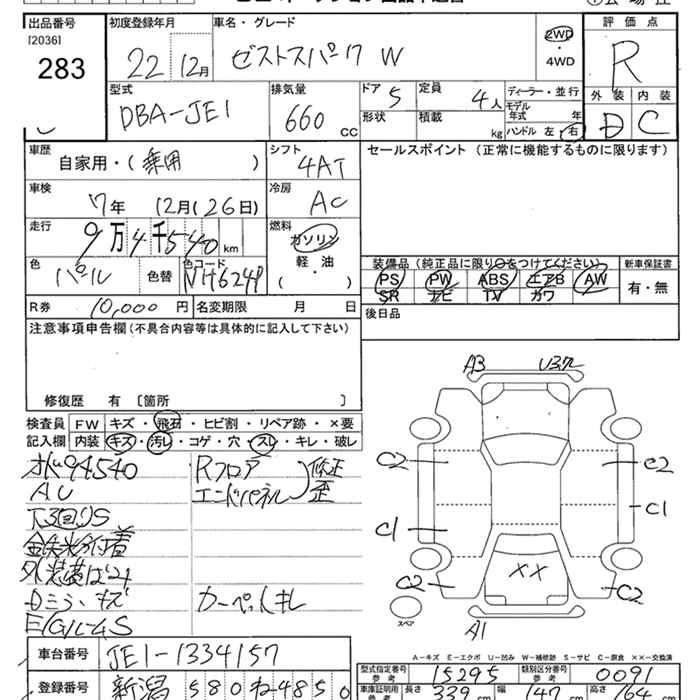 出品番号 初度登録年月 車名・グレード
[2036] 22 12月 ゼストスパーク W 2WD ・ 4WD 評価点 R
283
型式 DBA-JE1 排気量 660 CC ドア 5 定員 4人 ディーラー・並行
形状 積載 kg モデル年式 年 外装 内装
ハンドル 左 右 D C
車歴 自家用・(乗用) シフト 4AT セールスポイント (正常に機能するものに限ります)
車検 7年 12月(26日) 冷房 AC
走行 9万4千540km 燃料 ガソリン 軽・油 ( )
色 パール 色替 色コード NH624P
装備品 (純正品に限り○をつけてください) 新車保証書
PS PW ABS エアB AW 有・無
SR ナビ TV カワ
R券 10,000円 名変期限 月 日 後日品
注意事項申告欄 (不具合内容等は具体的に記入して下さい)
修復歴 有 [箇所 ]
検査員記入欄 FW キズ・飛石・ヒビ割・リペア跡・×要
内装 キズ・汚レ・コゲ・穴・スレ・キレ・破レ
94540 Rフロア
AC エンドパネル 修正 歪
外装
キズ カーペットキレ
A3 U3
C2 C2
C1 C1
XX
C2 C2
スペア
A1
A-キズ E-エクボ U-凹み W-補修跡 S-サビ C-腐食 ××-交換済
車台番号 JE1-1334157
登録番号 新潟 580 ね 4850
型式指定番号 参考 15295 類別区分番号 参考 0091
車庫証明用 参考 長さ 339cm 幅 147cm 高さ 164cm